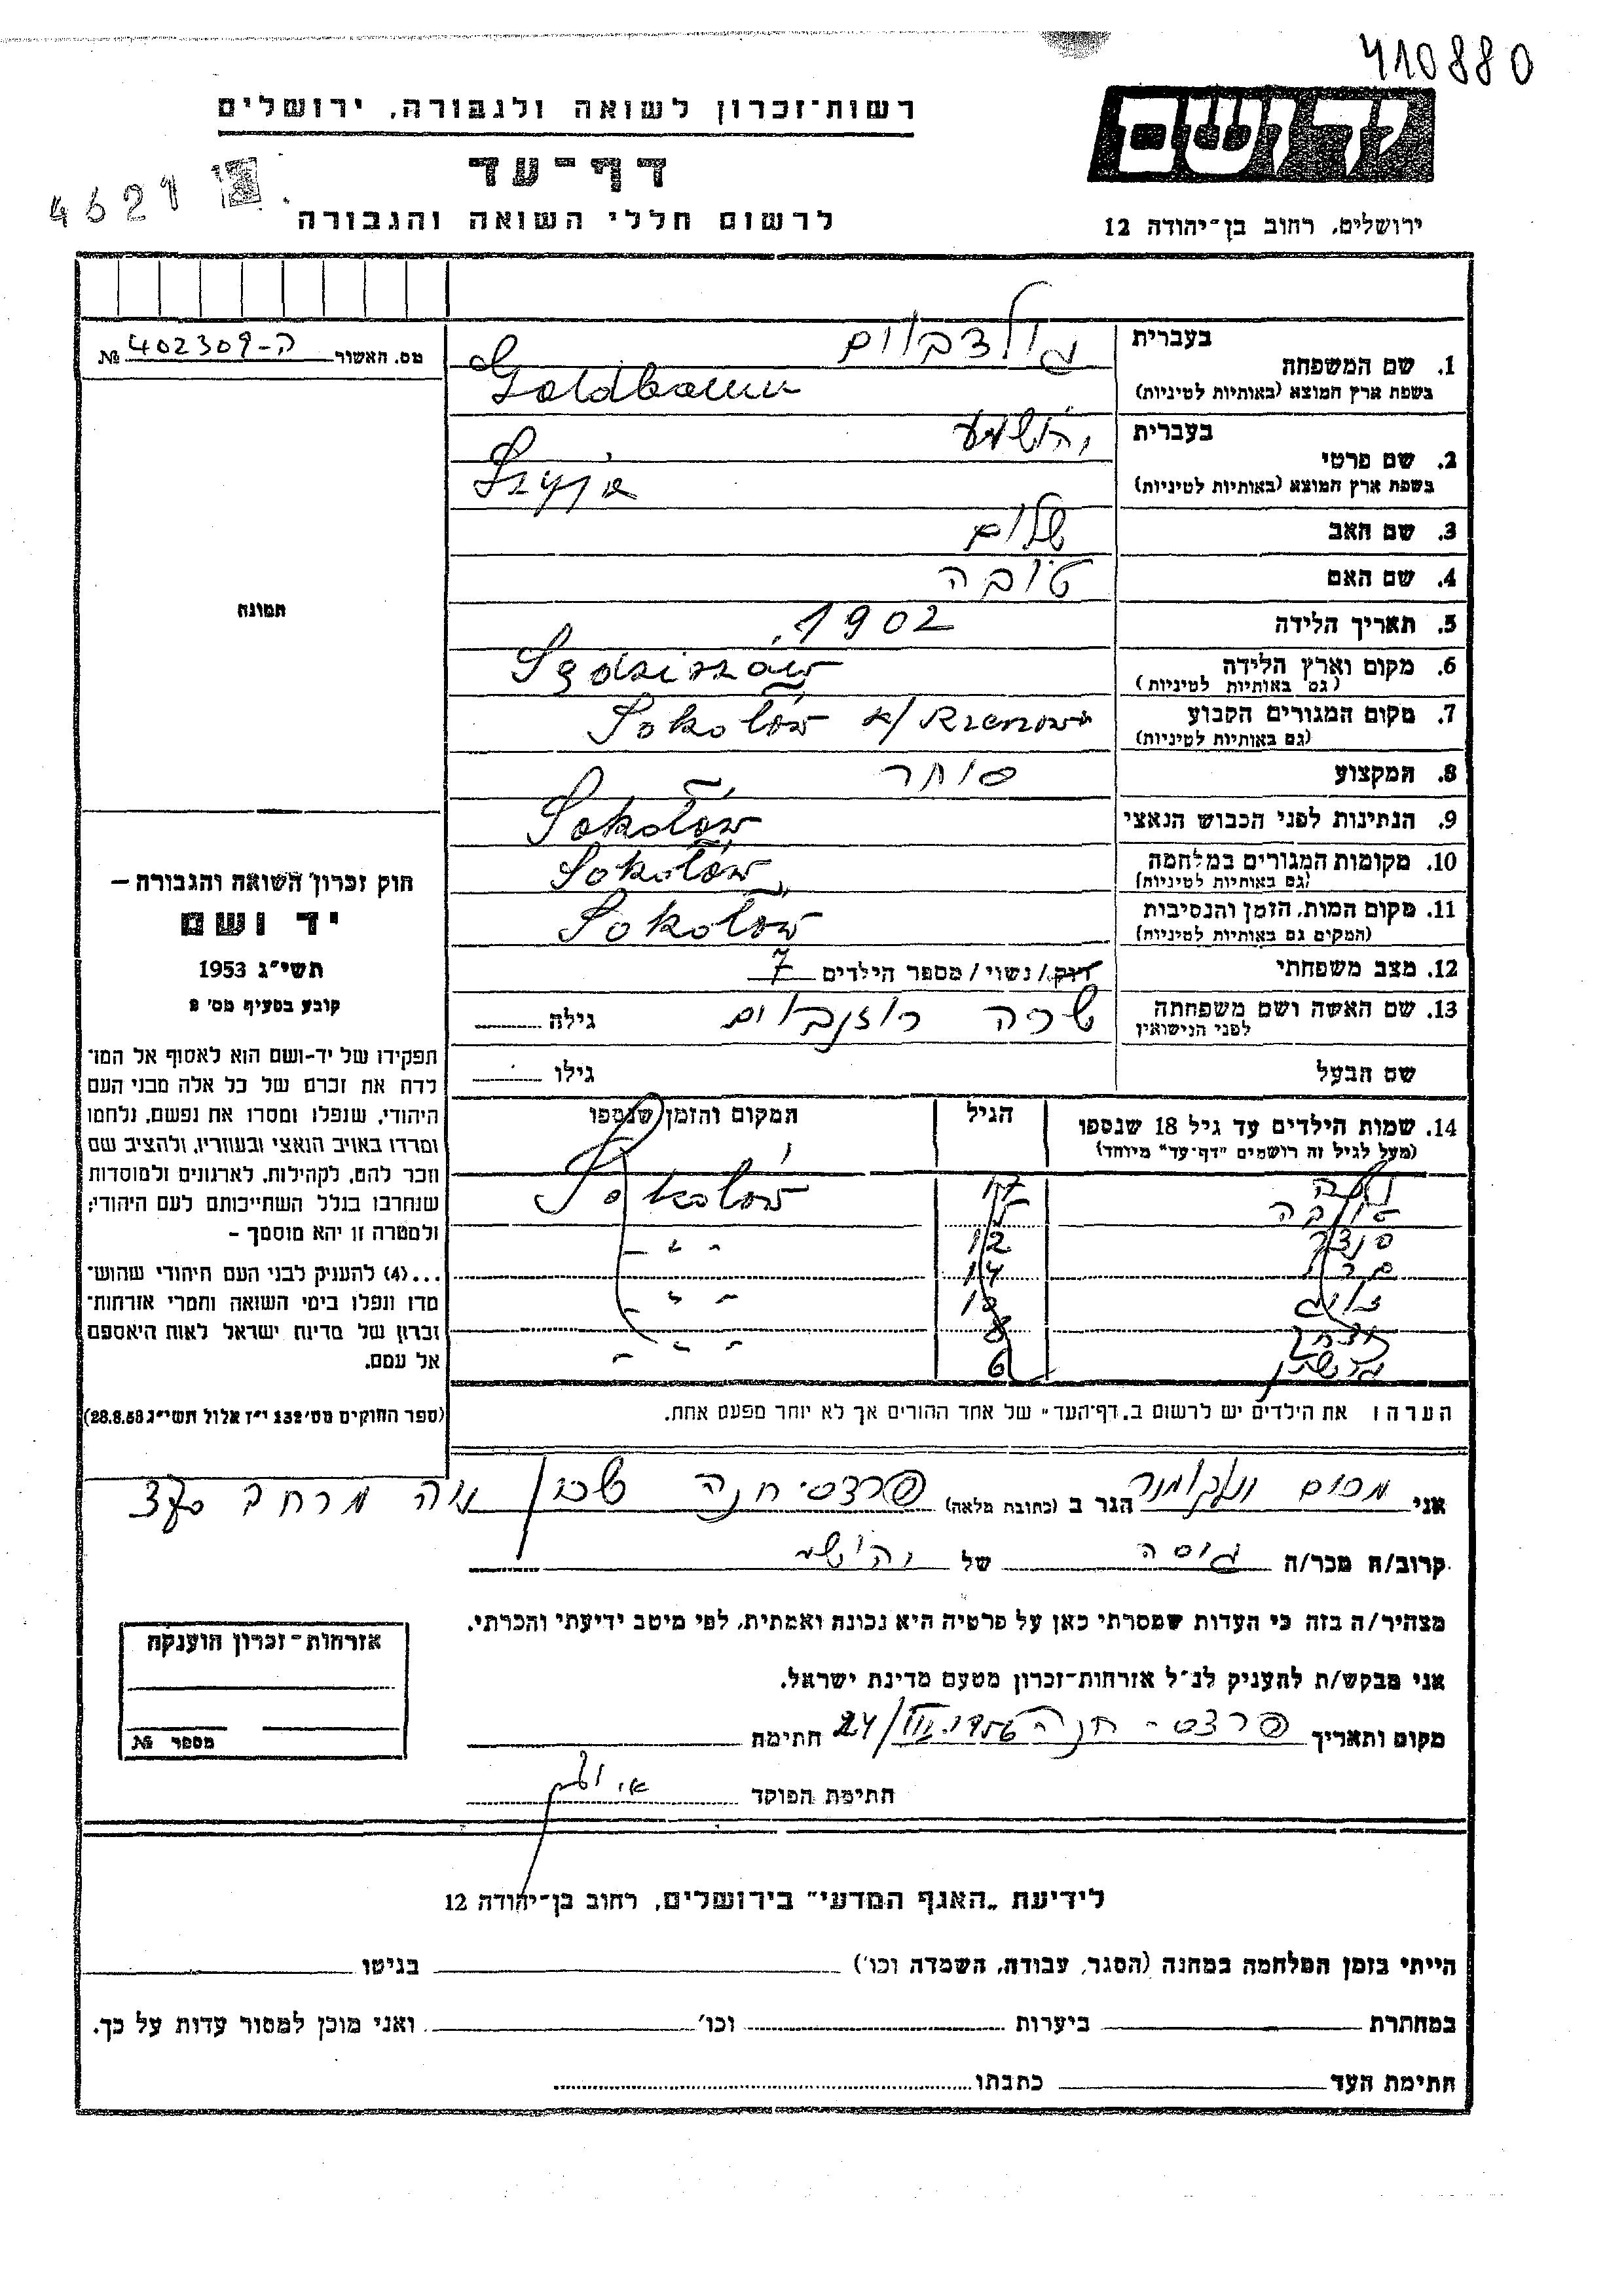 410880
יד ושם
רשות-זכרון לשואה ולגבורה, ירושלים
דף-עד
4621
לרשום חללי השואה והגבורה
ירושלים, רחוב בן-יהודה 12
מס. האשור ה-402309 №
בעברית
1. שם המשפחה
גולדבוים
בשפת ארץ המוצא (באותיות לטיניות)
Goldbaum
בעברית
2. שם פרטי
יהושע
בשפת ארץ המוצא (באותיות לטיניות)
Szyja
3. שם האב
שלום
4. שם האם
טובה
5. תאריך הלידה
1902
6. מקום וארץ הלידה
(גם באותיות לטיניות)
Sędziszów
7. מקום המגורים הקבוע
(גם באותיות לטיניות)
Sokołów k/
8. המקצוע
סוחר
9. הנתינות לפני הכבוש הנאצי
Sokołów
10. מקומות המגורים במלחמה
(גם באותיות לטיניות)
Sokołów
11. מקום המות, הזמן והנסיבות
(המקום גם באותיות לטיניות)
Sokołów
12. מצב משפחתי
רוק/ נשוי/ מספר הילדים 7
13. שם האשה ושם משפחתה
לפני הנישואין
שרה רוזנבוים
גילה
שם הבעל
גילו
14. שמות הילדים עד גיל 18 שנספו
(מעל לגיל זה רושמים "דף-עד" מיוחד)
הגיל
המקום והזמן שנספו
17
Sokołów
טובה
12
14
8
6
הערה: את הילדים יש לרשום ב"דף-העד" של אחד ההורים אך לא יותר מפעם אחת.
תמונה
חוק זכרון השואה והגבורה –
יד ושם
תשי"ג 1953
קובע בסעיף מס' 2
תפקידו של יד-ושם הוא לאסוף אל המו-
לדת את זכרם של כל אלה מבני העם
היהודי, שנפלו ומסרו את נפשם, נלחמו
ומרדו באויב הנאצי ובעוזריו, ולהציב שם
וזכר להם, לקהילות, לארגונים ולמוסדות
שנחרבו בגלל השתייכותם לעם היהודי;
ולמטרה זו יהא מוסמך –
...(4) להעניק לבני העם היהודי שהוש-
מדו ונפלו בימי השואה והמרי אזרחות-
זכרון של מדינת ישראל לאות היאספם
אל עמם.
(ספר החוקים מס' 132 י"ז אלול תשי"ג 28.8.53)
אני
הגר ב (כתובת מלאה) פרדס-חנה
קרוב/ה מכר/ה גיסה של יהושע
מצהיר/ה בזה כי העדות שמסרתי כאן על פרטיה היא נכונה ואמתית, לפי מיטב ידיעתי והכרתי.
אני מבקש/ת להעניק לנ"ל אזרחות-זכרון מטעם מדינת ישראל.
אזרחות-זכרון הוענקה
מספר №
מקום ותאריך פרדס-חנה 24/III
חתימה
חתימת הפוקד
לידיעת "האגף המדעי" בירושלים, רחוב בן-יהודה 12
הייתי בזמן המלחמה במחנה (הסגר, עבודה, השמדה וכו') בגיטו
במחתרת ביערות וכו' ואני מוכן למסור עדות על כך.
חתימת העד כתבתו